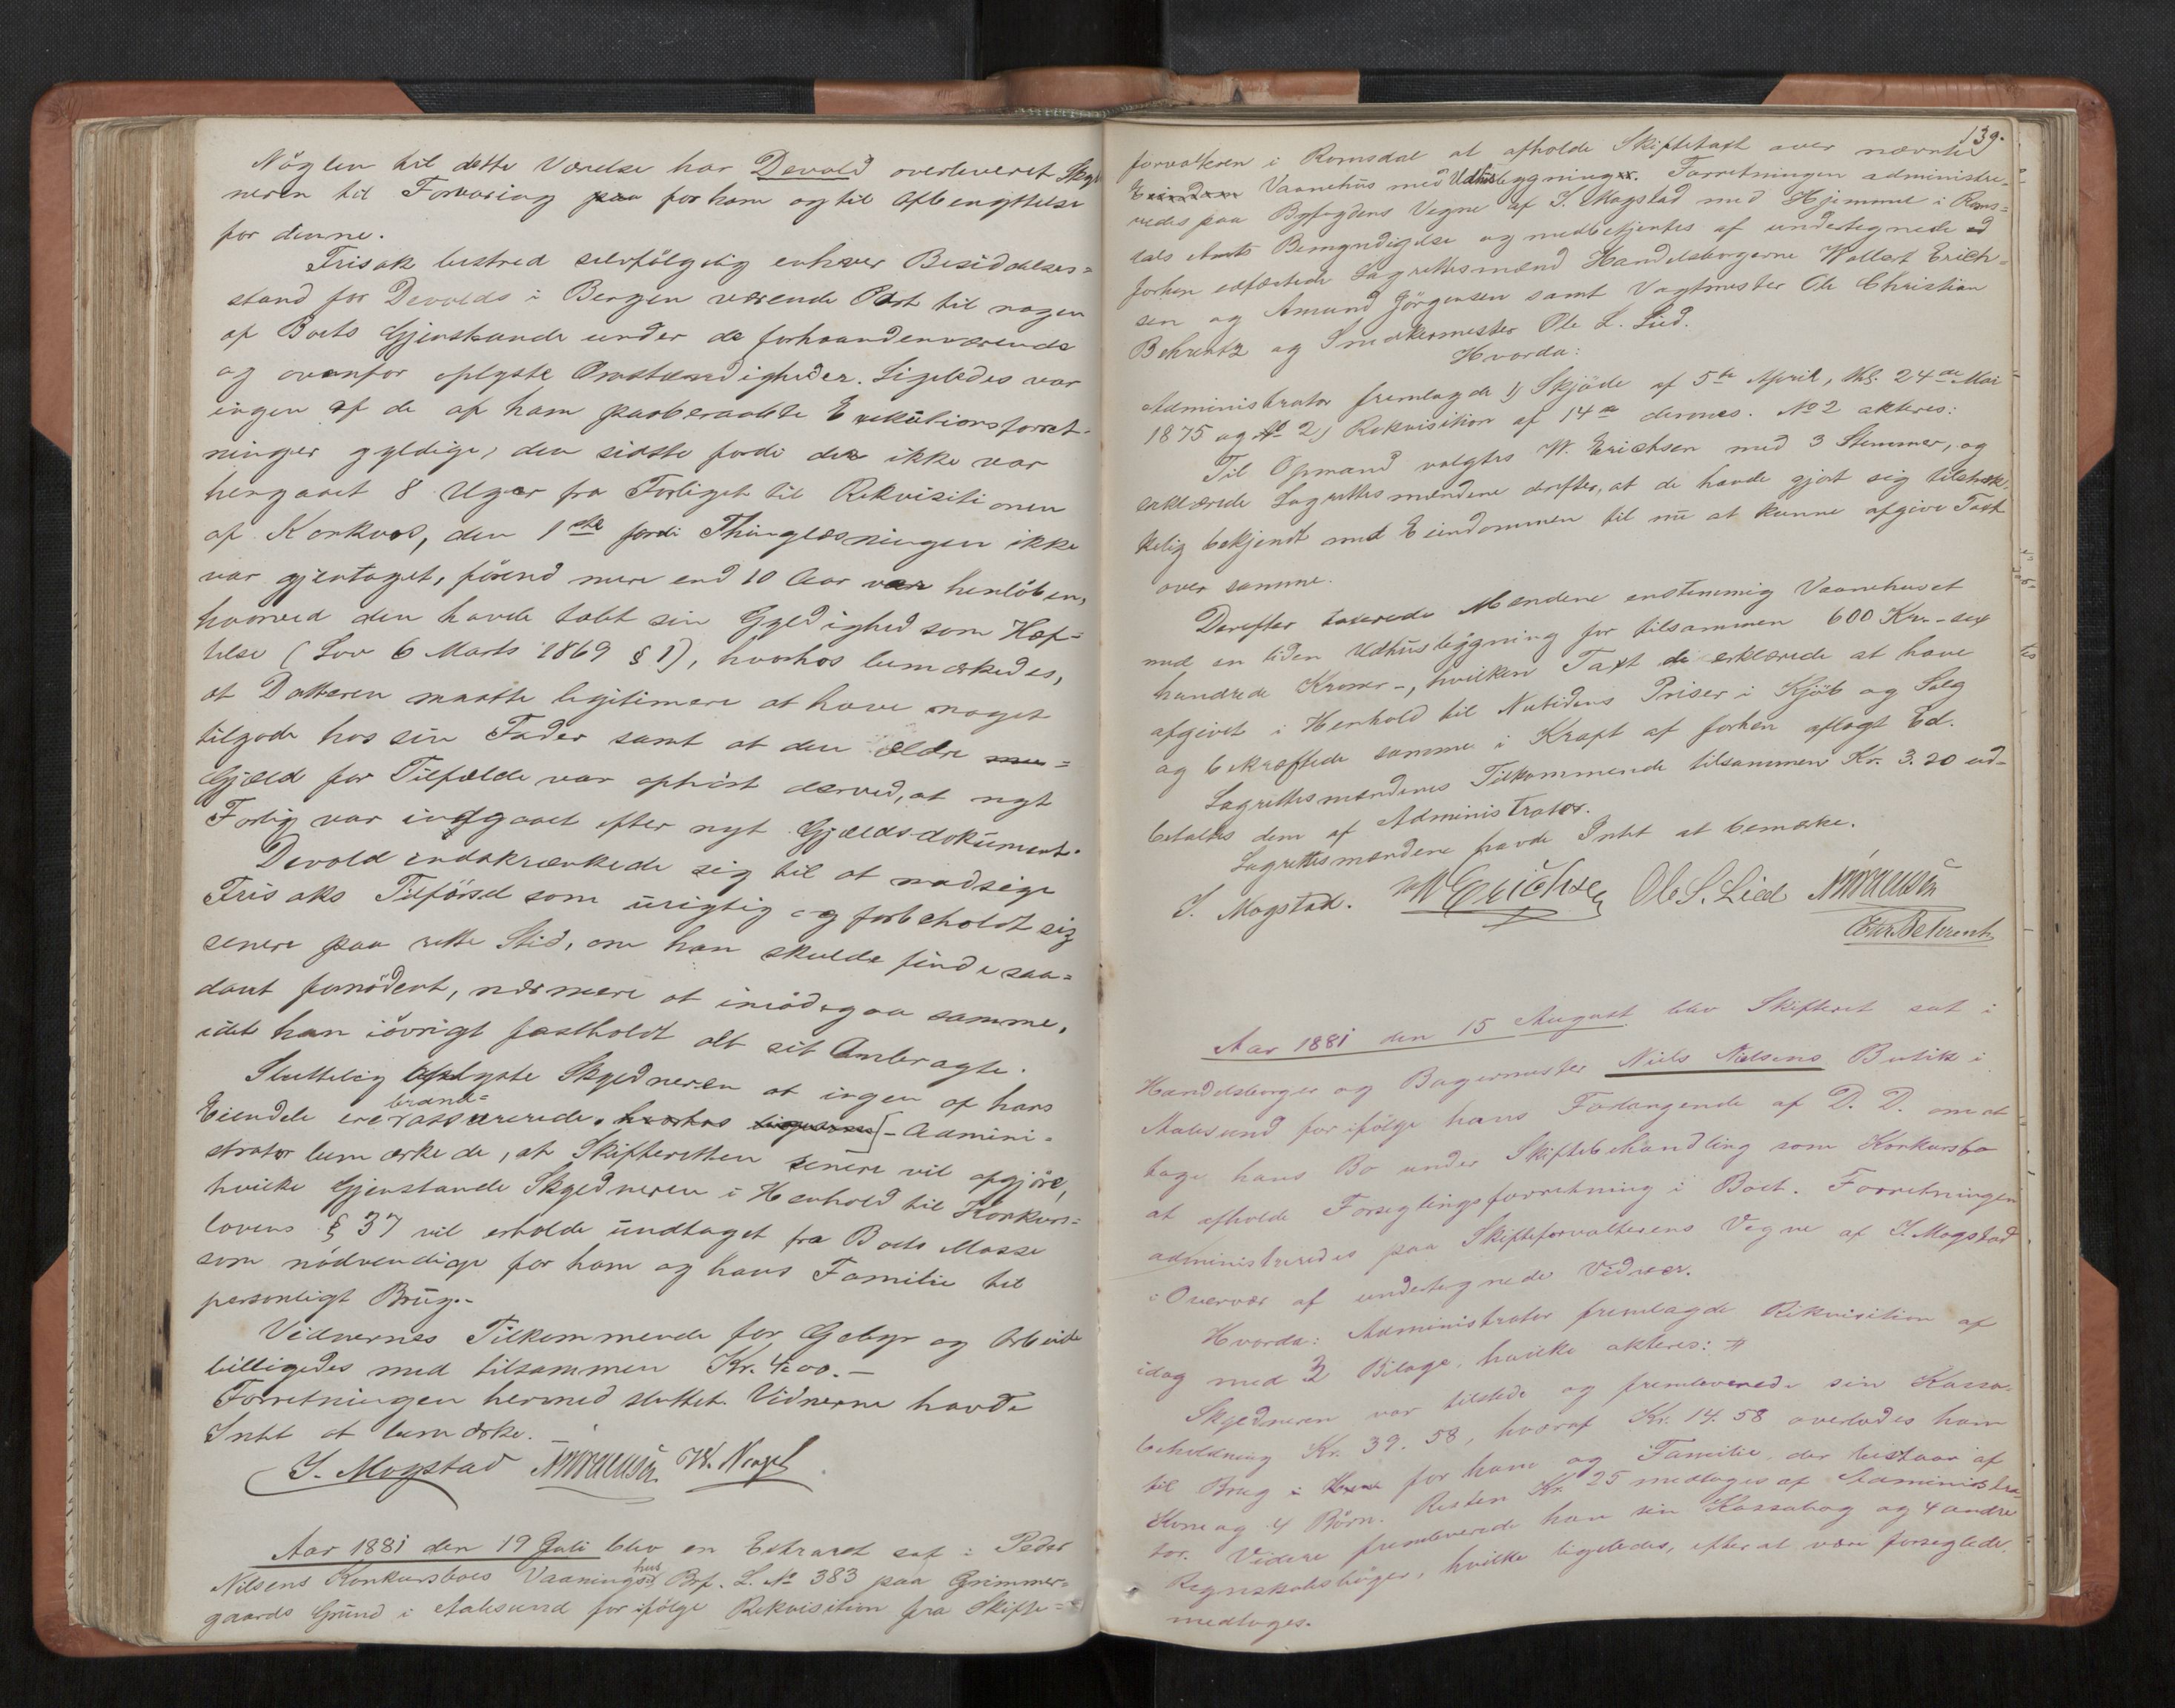 Nöglen til dette Værelse har Devold overleveret Skyd
neren til Forvaring paa for ham og til Afbenyttelse
for denne.
Frisak bestred selvfölgelig enhver Besiddelses=
stand for Devolds i Bergen værende Part til nogen
af Boets Gjenstande under de forhaandenværende
og ovenfor oplyste Omstændigheder. Ligeledes var
ingen af de af ham paaberaabte Exekutionsforret-
ninger gyldige, den sidste fordi der ikke var
hengaaet 8 Uger fra Forliget til Rekvisitionen
af Konkurs, den 1ste fordi Thinglæsningen ikke
var gjentaget, förend mere end 10 Aar var henlöben,
hvorved den havde tabt sin Gyldighed som Hæf=
telse (Lov 6 Marts 1869 § 1), hvorhos bemærkedes,
at Datteren maatte legitimere at have noget
tilgode hos sin Fader samt at den ældre
Gjæld for Tilfælde var ophört derved, at nyt
Forlig var indgaaet efter nyt Gjældsdokument.
Devold indskrænkede sig til at modsige
Frisaks Tilförsel som urigtig og forbeholdt sig
senere paa rette Sted, om han skulde finde saa=
dant fornödent, nærmere at imödegaa samme,
idet han iövrigt fastholdt alt sit Anbragte.
Sluttelig oplyste Skyldneren at ingen af hans
Eiendele ere brand=assurerede. hvorhos - Admini=
strator bemærkede, at Skifteretten senere vil afgjöre,
hvilke Gjenstande Skyldneren i Henhold til Konkurs=
lovens § 37 vil erholde undtaget fra Boets Masse
som nödvendige for ham og hans Familie til
personligt Brug.-
Vidnernes Tilkommende for Gebyr og Arbeide
billigedes med tilsammen Kr. 4.00.-
Forretningen hermed sluttet. Vidnerne havde
Intet at bemærke.
J. Mogstad AJörgensen W. Nagel
Aar 1881 den 19 Juli blev en Extraret sat i Peder
Nilsens Konkursboes Vaaningshus Brf. L. No 383 paa Grimmer=
gaards Grund i Aalesund for ifölge Rekvisition fra Skifte=
139.
forvalteren i Romsdal at afholde Skiftetaxt over nævnte
Eiendom Vaanehus med Udhusbygning. Forretningen administre=
redes paa Byfogdens Vegne af J. Mogstad med Hjemmel i Roms=
dals Amts Bemyndigelse og medbetjentes af undertegnede ad
forhen edfæstede Lagrettesmænd Handelsborgerne Wollert Erich=
sen og Amund Jörgensen samt Vagtmester Ole Christian
Behrentz og Snedkermester Ole L. Lied.
Hvorda:
Administrator fremlagde 1) Skjöde af 5te April, thl. 24de Mai
1875 og 2) Rekvisition af 14de dennes. No 2 akteres:
Til Opmand valgtes W. Erichsen med 3 Stemmer, og
erklærede Lagrettesmændene derefter, at de havde gjort sig tilstræk
kelig bekjendt med Eiendommen til nu at kunne afgive Taxt
over samme.
Derefter taxerede Mændene enstemmig Vaanehuset
med en liden Udhusbygning for tilsammen 600 Kr. - sex
hundrede Kroner -, hvilken Taxt de erklærede at have
afgivet i Henhold til Nutidens Priser i Kjöb og Salg
og bekræftede samme i Kraft af forhen aflagt Ed.
Lagrettesmændenes Tilkommende tilsammen Kr. 3.20 ud-
betaltes dem af Administrator.
Lagrettesmændene havde Intet at bemærke.
J. Mogstad. W Erichsen Ole L. Lied AJörgensen
Chr. Behrentz
Aar 1881 den 15 August blev Skifteret sat i
Handelsborger og Bagermester Niels Nielsens Butik i
Aalesund for ifölge hans Forlangende af D. D. om at
tage hans Bo under Skiftebehandling som Konkursbo
at afholde Forseglingsforretning i Boet. Forretningen
administreredes paa Skifteforvalterens Vegne af J. Mogstad
i Overvær af undertegnede Vidner.
Hvorda: Administrator fremlagde Rekvisition af
idag med 3 Bilage, hvilke akteres:
Skyldneren var tilstede og fremleverede sin Kassa-
beholdning Kr. 39.58, hvoraf Kr. 14.58 overlodes ham
til Brug for ham og Familie, der bestaar af
Kone og 4 Börn. Resten Kr. 25 medtoges af Administra-
tor. Videre fremleverede han sin Kassabog og 4 andre
Regnskabsböger, hvilke ligeledes, efter at være forseglede,
medtoges.